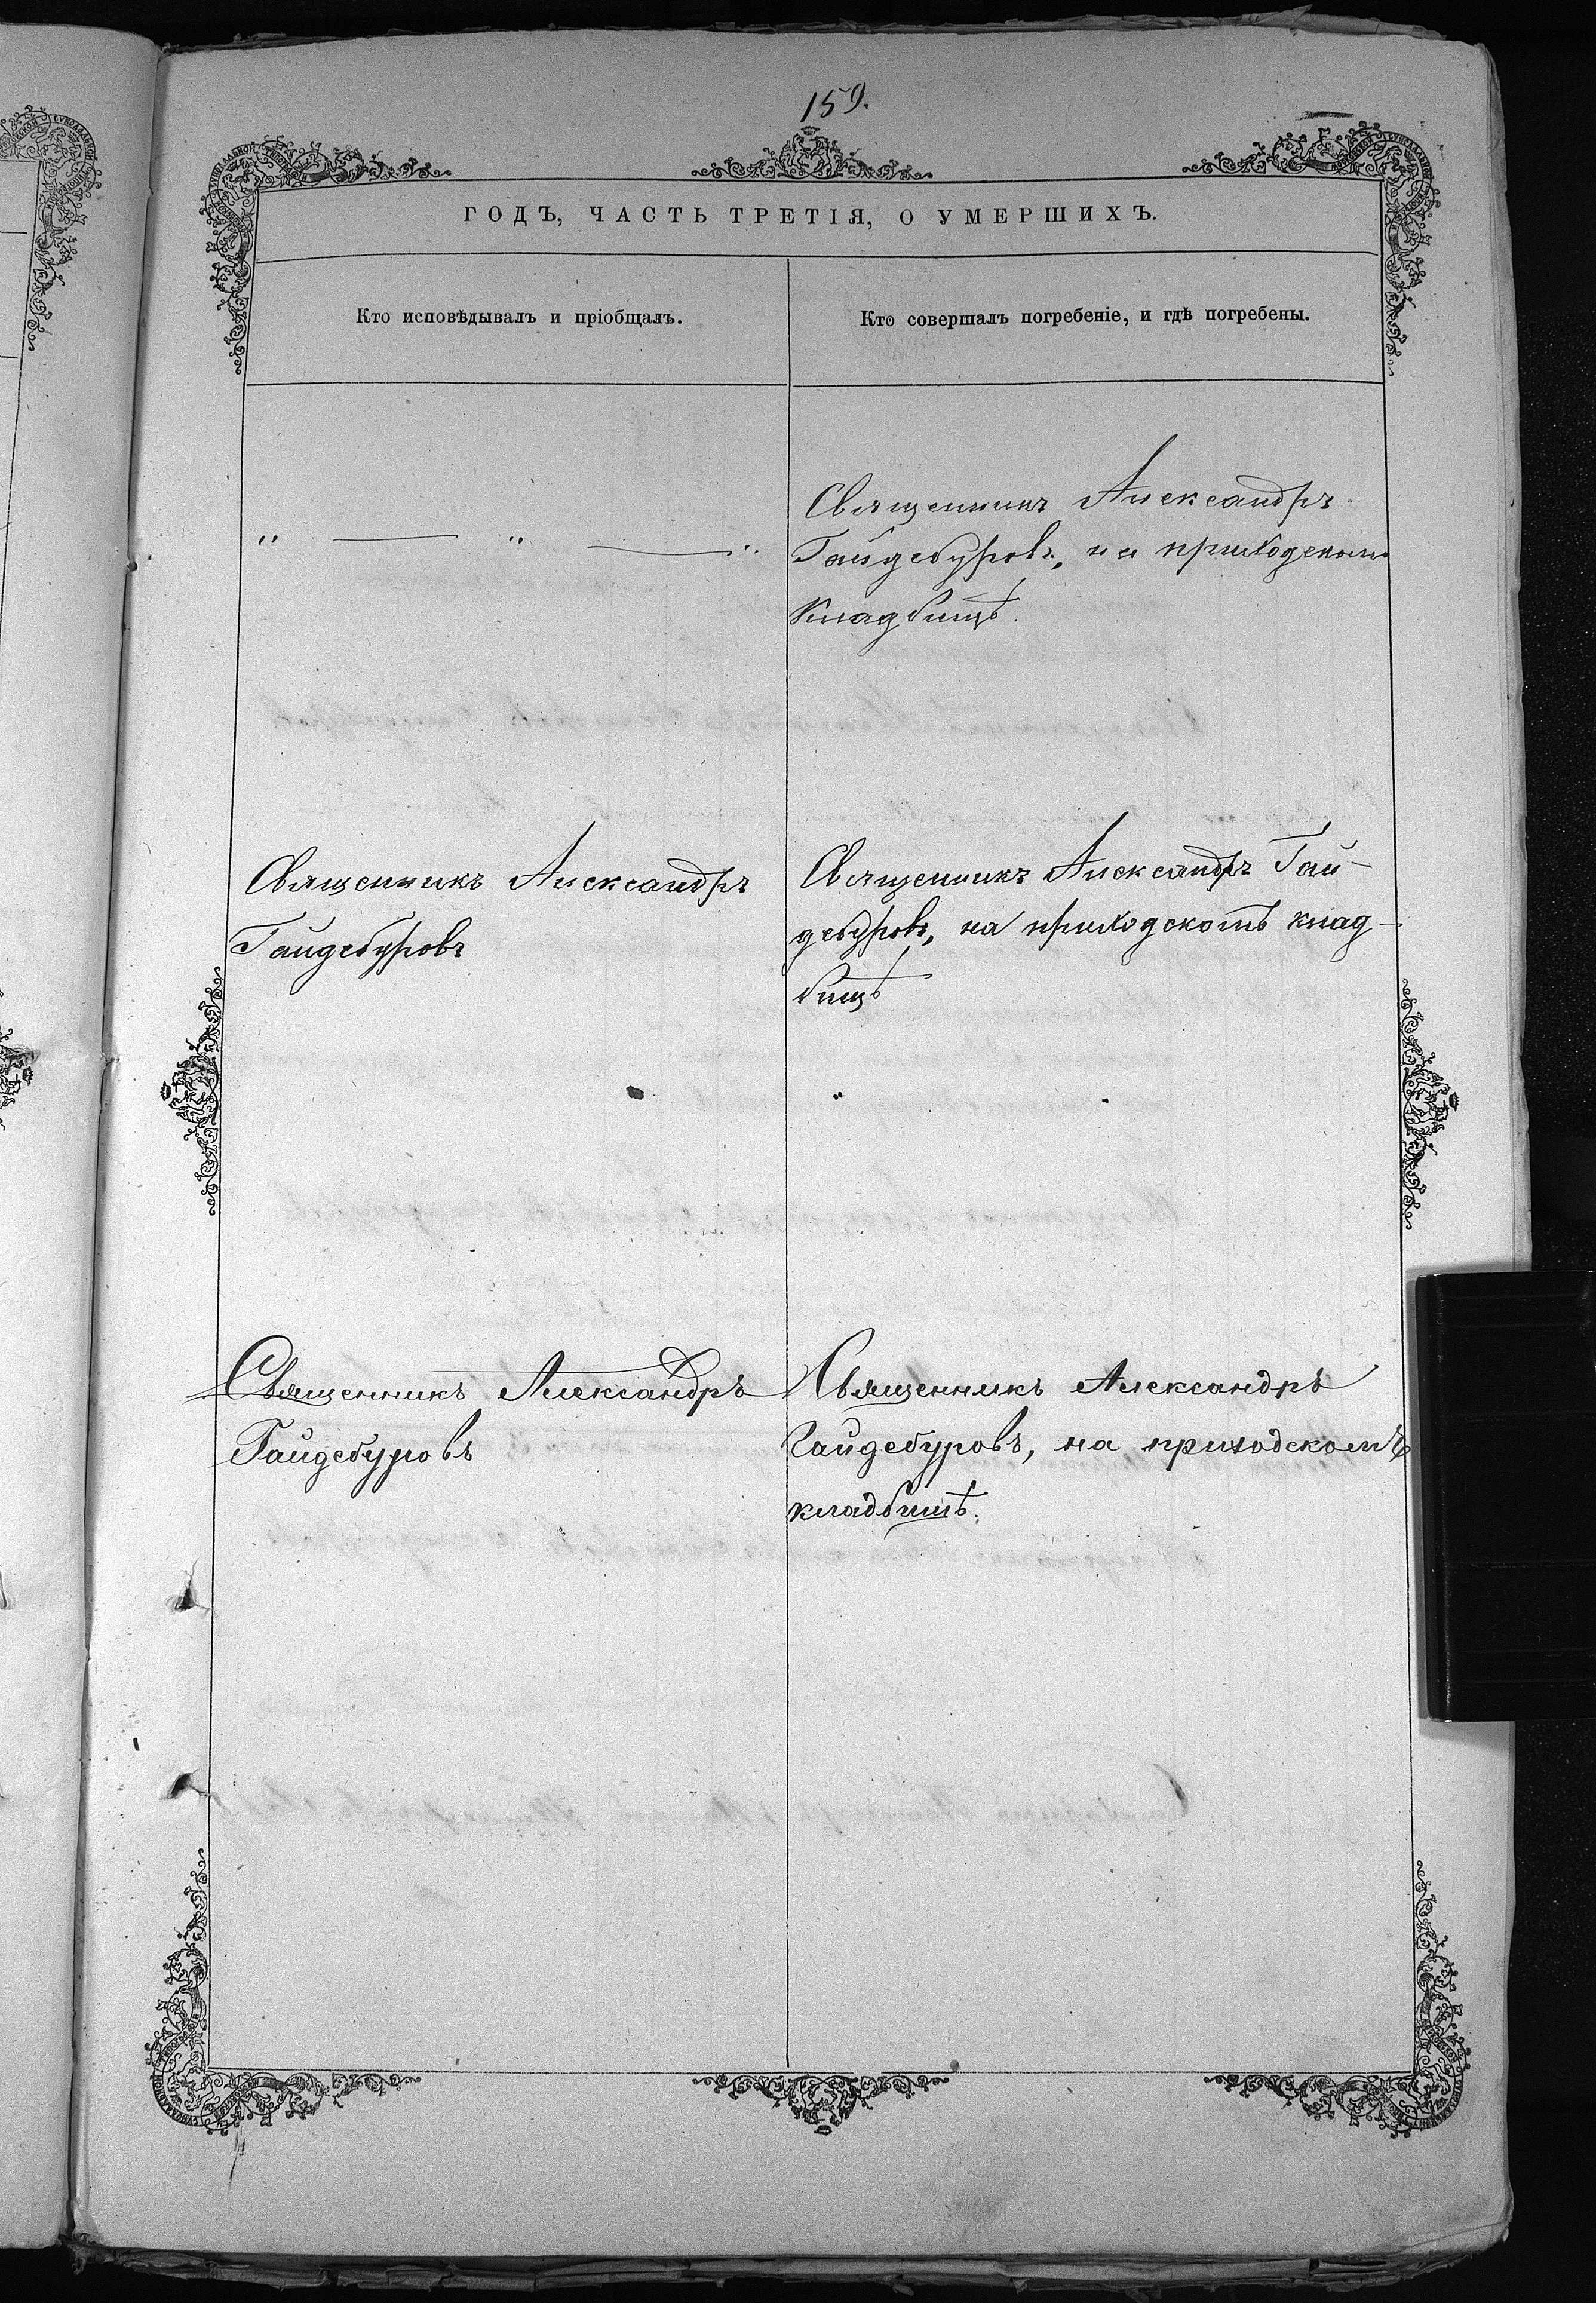 159.
ГОДЪ, ЧАСТЬ ТРЕТІЯ, О УМЕРШИХЪ.
Кто исповѣдывалъ и пріобщалъ.
Кто совершалъ погребеніе, и гдѣ погребены.
„ — „ — „
Священникъ Александръ
Гайдебуровъ, на приходскомъ
Кладбищѣ.
Священникъ Александръ
Гайдебуровъ
Священникъ Александръ Гай-
дебуровъ, на приходскомъ клад-
бищѣ
Священникъ Александръ
Гайдебуровъ
Священникъ Александръ
Гайдебуровъ, на приходскомъ
кладбищѣ.